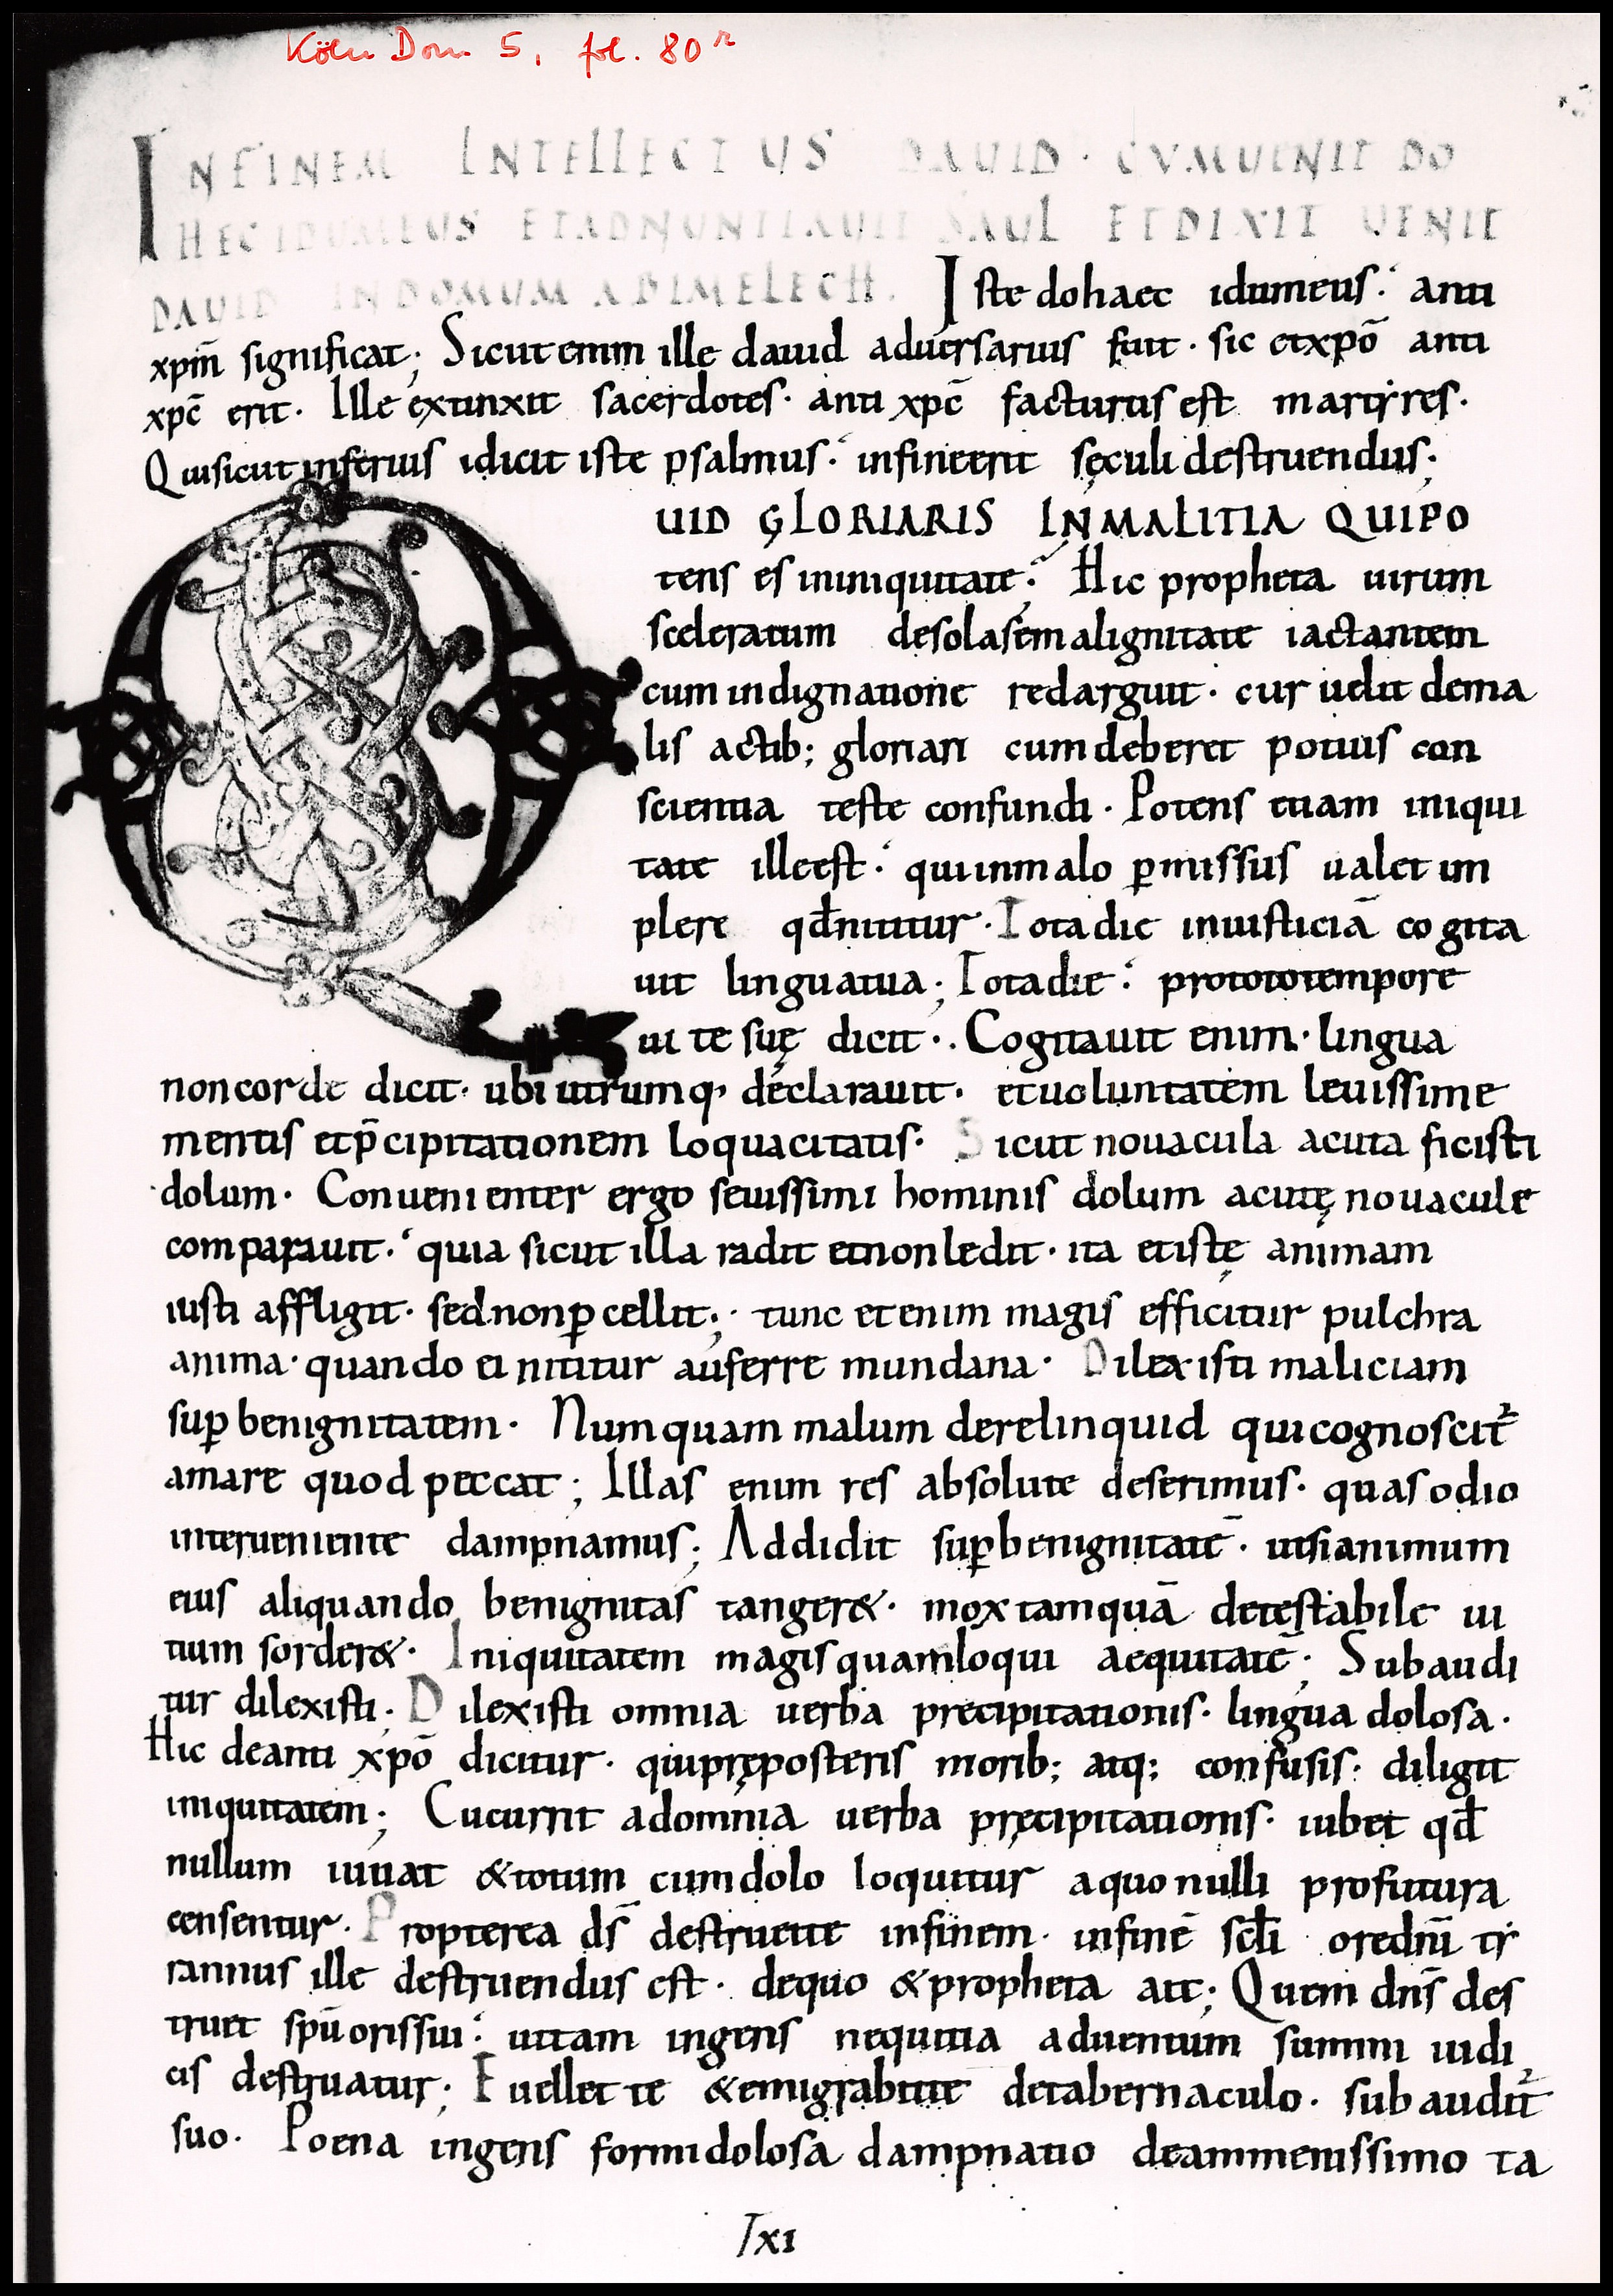 Köln Dom 5, fol. 80r
IN FINEM INTELLECTUS DAUID · CUM UENIT DO
HEC IDUMEUS ET ADNUNTIAUIT SAUL ET DIXIT UENIT
DAUID IN DOMUM ADIMELECH. Iste dohaec idumeus· anti
xpm̄ significat; Sicut enim ille dauid aduersarius fuit · sic et xpō anti
xpc̄ erit · Ille extinxit sacerdotes · anti xpc̄ facturus est martyres ·
Qui sicut inferius idicit iste psalmus · in fine erit sęculi destruendus;
QUID GLORIARIS IN MALITIA QUI PO
tens es in iniquitate; Hic propheta uirum
sceleratum de sola sem alignitate iactantem
cum indignatione redarguit · cur uelit de ma
lis actib; gloriari cum deberet potius con
scientia teste confundi · Potens tuam iniqui
tate ille est · qui in malo p̱missus ualet im
plere qđ nititur · Tota dic iniusticiā cogita
uit lingua tua; Tota die · pro toto tempore
ui te suę dicit · Cogitauit enim · lingua
non corde dicit · ubi utrumq; declarauit · et uoluntatem leuissime
mentis et p̄cipitationem loquacitatis · Sicut nouacula acuta ficisti
dolum · Conuenienter ergo seuissimi hominis dolum acutę nouacule
comparauit · quia sicut illa radit et non ledit · ita et istę animam
iusti affligit · sed non p̱cellit; tunc etenim magis efficitur pulchra
anima · quando ei nititur auferre mundana · Dilexisti maliciam
sup̱ benignitatem · Numquam malum derelinquid qui cognoscit᷑
amare quod peccat; Illas enim res absolute deserimus · quas odio
interueniente dampnamus; Addidit sup̱ benignitatē · ut si animum
eius aliquando benignitas tanger& · mox tamquā detestabile ui
tium sorder& · Iniquitatem magis quam loqui aequitatē; Subaudi
tur dilexisti; Dilexisti omnia uerba precipitationis · lingua dolosa ·
Hic de anti xpō dicitur · qui pręposteris morib; atq; confusis · diligit
iniquitatem; Cucurrit ad omnia uerba pręcipitationis · iubet qđ
nullum iuuat & totum cum dolo loquitur a quo nulli profutura
censentur · Propterea ds̄ destruet te in finem · in finē sc̄li oredn̄i ty
rannus ille destruendus est · de quo & propheta ait; Quem dn̄s des
truet spū oris sui · ut tam ingens nequitia aduentum summi iudi
cis destruatur; Euellet te & emigrabit te de tabernaculo · subaudit᷑
suo · Poena ingens formidolosa dampnatio de ammenissimo ta
Ixi